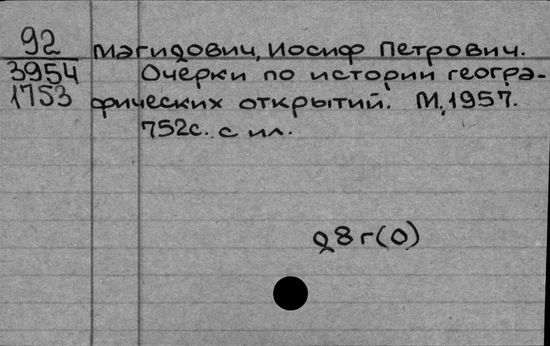 92
3954
1753
Магидович, Иосиф Петрович.
Очерки по истории геогра-
фических открытий. М, 1957.
752с. с ил.
28г(0)